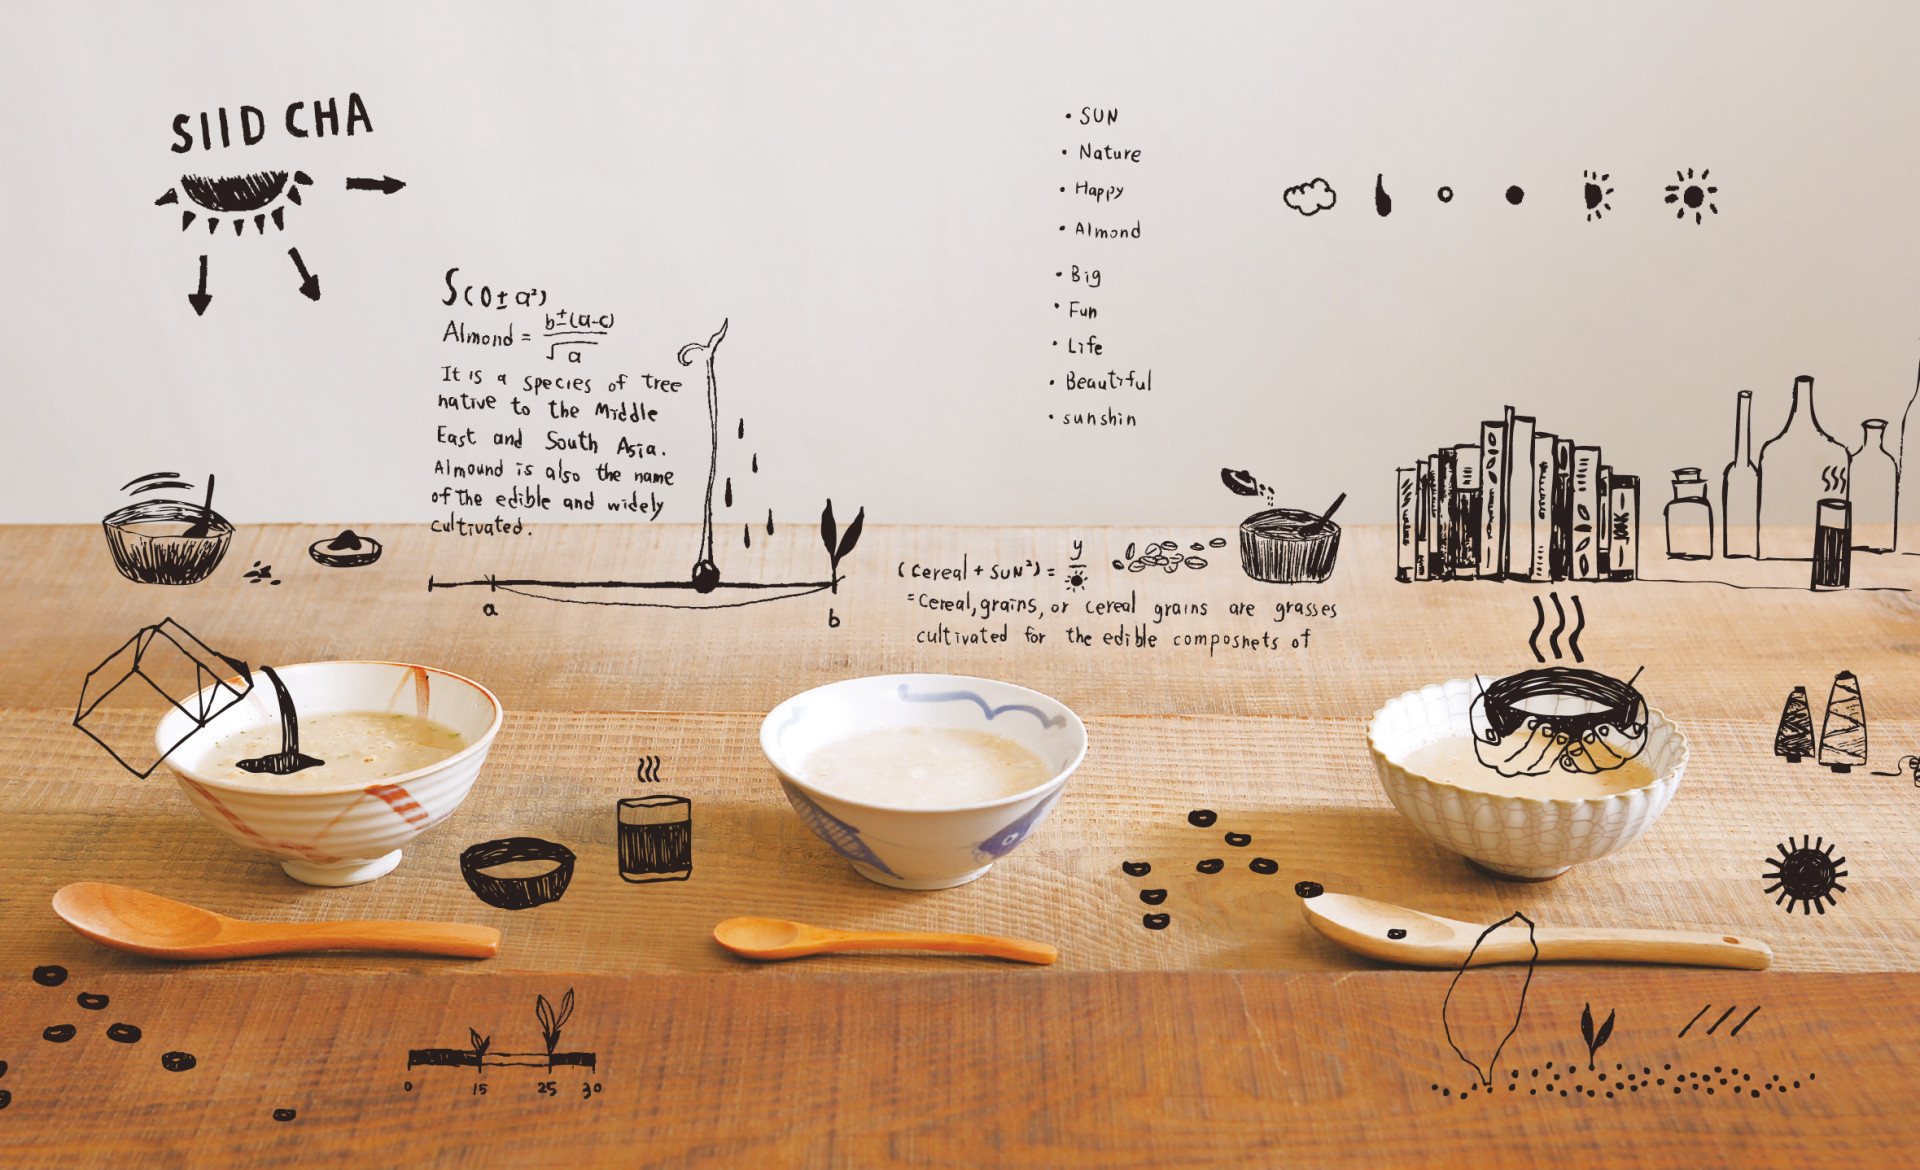 SIID CHA
S(0±a²)
Almond = b±(a-c)
√a
It is a species of tree
native to the Middle
East and South Asia.
Almound is also the name
of the edible and widely
cultivated.
a
b
• SUN
• Nature
• Happy
• Almond
• Big
• Fun
• Life
• Beautiful
• sunshin
(Cereal + SUN²) = y
=Cereal, grains, or cereal grains are grasses
cultivated for the edible composnets of
0 15 25 30